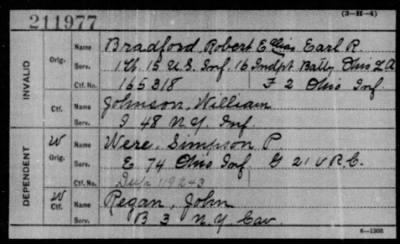 (3-H-4)
211977
INVALID
Orig.
Name Bradford, Robert E alias Earl R.
Serv. 15 U.S. Inf. 16 Indpt Batty Ohio L A
Ctf. No. 165318 F 2 Ohio Inf.
Ctf.
Name Johnson, William
Serv. I 48 N.Y. Inf.
DEPENDENT
W
Orig.
Name Were, Simpson P.
Serv. E 74 Ohio Inf. G 21 V R C.
Ctf. No. 119243
W
Ctf.
Name Regan, John
Serv. B 3 N.Y. Cav